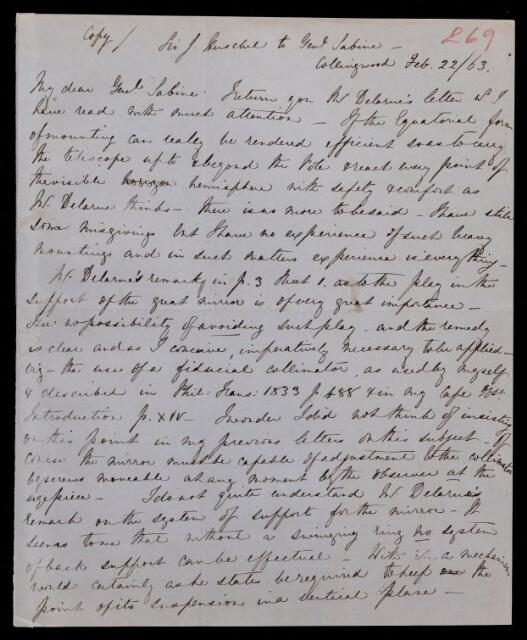 269
Copy / Sir J. Herschel to Genl. Sabine –
Collingwood Feb. 22/63.
My dear Genl. Sabine. I return you Mr. Delarue's letter wh I
have read with much attention – If the Equatorial form
of mounting can really be rendered efficient so as to carry
the telescope up to & beyond the Pole & reach every point of
the visible hemisphere with safety & comfort as
Mr. Delarue thinks – there is no more to be said – I have still
some misgivings but I have no experience of such heavy
mountings and in such matters experience is everything –
Mr. Delarue's remark in p. 3 sheet 1. as to the play in the
support of the great mirror is of very great importance –
I see no possibility of avoiding such play – and the remedy
is clear and as I conceive, imperatively necessary to be applied –
viz – the use of a fiducial collimator, as used by myself
& described in Phil. Trans: 1833 p. 488 & in my Cape Obsns
Introduction p. XIV – I wonder I did not think of insisting
on this point in my previous letters on this subject – Of
course the mirror must be capable of adjustment to the collimator
by screws moveable at any moment by the observer at the
eyepiece – I do not quite understand Mr. Delarue's
remark on the system of support for the mirror – It
seems to me that without a swinging ring no system
of back support can be effectual – With a mechanism
would certainly as he states be required to keep the
point of its suspension in a vertical plane –